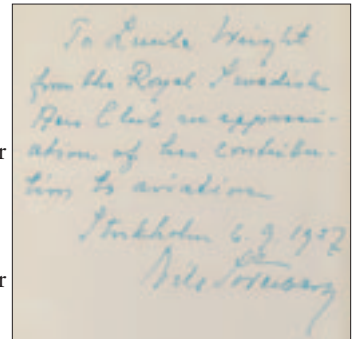 To Lucile Wright
from the Royal Swedish
Aero Club in appreci-
r
ation of her contribu-
tion to aviation
Stockholm 6.9.1957
r
Nils